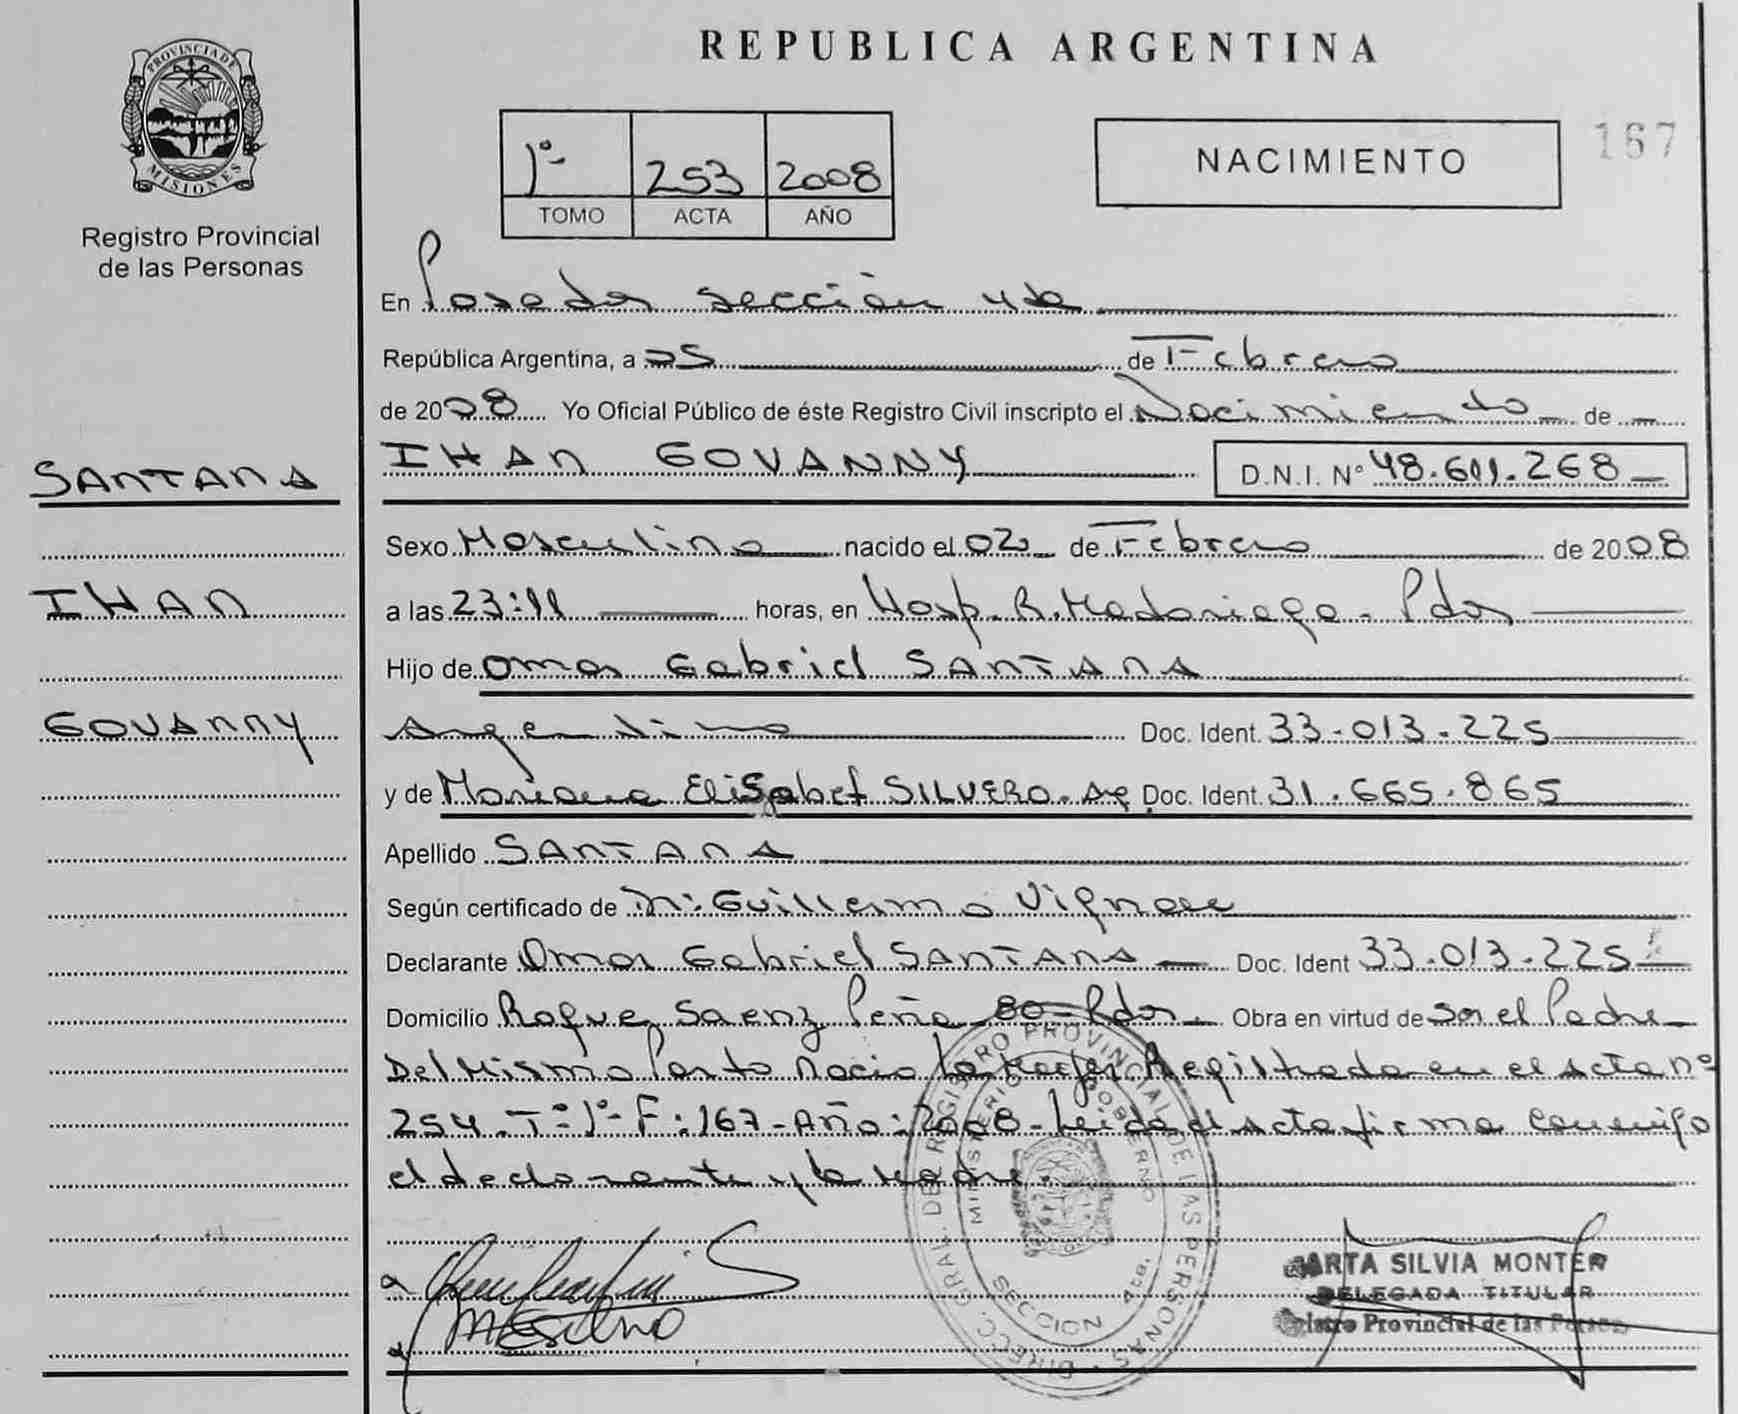 PROVINCIA DE
MISIONES
Registro Provincial
de las Personas
SANTANA
IHAN
GOVANNY
REPUBLICA ARGENTINA
1º- 253 2008
TOMO ACTA AÑO
NACIMIENTO
167
En Posadas sección 4ta
República Argentina, a 05 de Febrero
de 2008 Yo Oficial Público de éste Registro Civil inscripto el Nacimiento de
IHAN GOVANNY D.N.I. Nº 48.611.268
Sexo Masculino nacido el 02 de Febrero de 2008
a las 23:11 horas, en Hosp. R. Madariaga - Pdas
Hijo de Omar Gabriel SANTANA
Argentino Doc. Ident. 33.013.225
y de Mariana Elisabet SILVERO. Ag Doc. Ident. 31.665.865
Apellido SANTANA
Según certificado de Dr. Guillermo
Declarante Omar Gabriel SANTANA Doc. Ident 33.013.225
Domicilio Roque Saenz Peña 80 - Pdas. Obra en virtud de ser el Padre
Del Mismo Parto nacio la Registrada en el acta nº
254 - Tº 1º- F: 167 - Año: 2008 - Leida el acta firma conmigo
el declarante y la Madre.
DIRECC. GRAL. DEL REGISTRO PROVINCIAL DE LAS PERSONAS
MINISTERIO GOBIERNO
SECCION 4ta.
MARTA SILVIA MONTER
DELEGADA TITULAR
Registro Provincial de las Personas